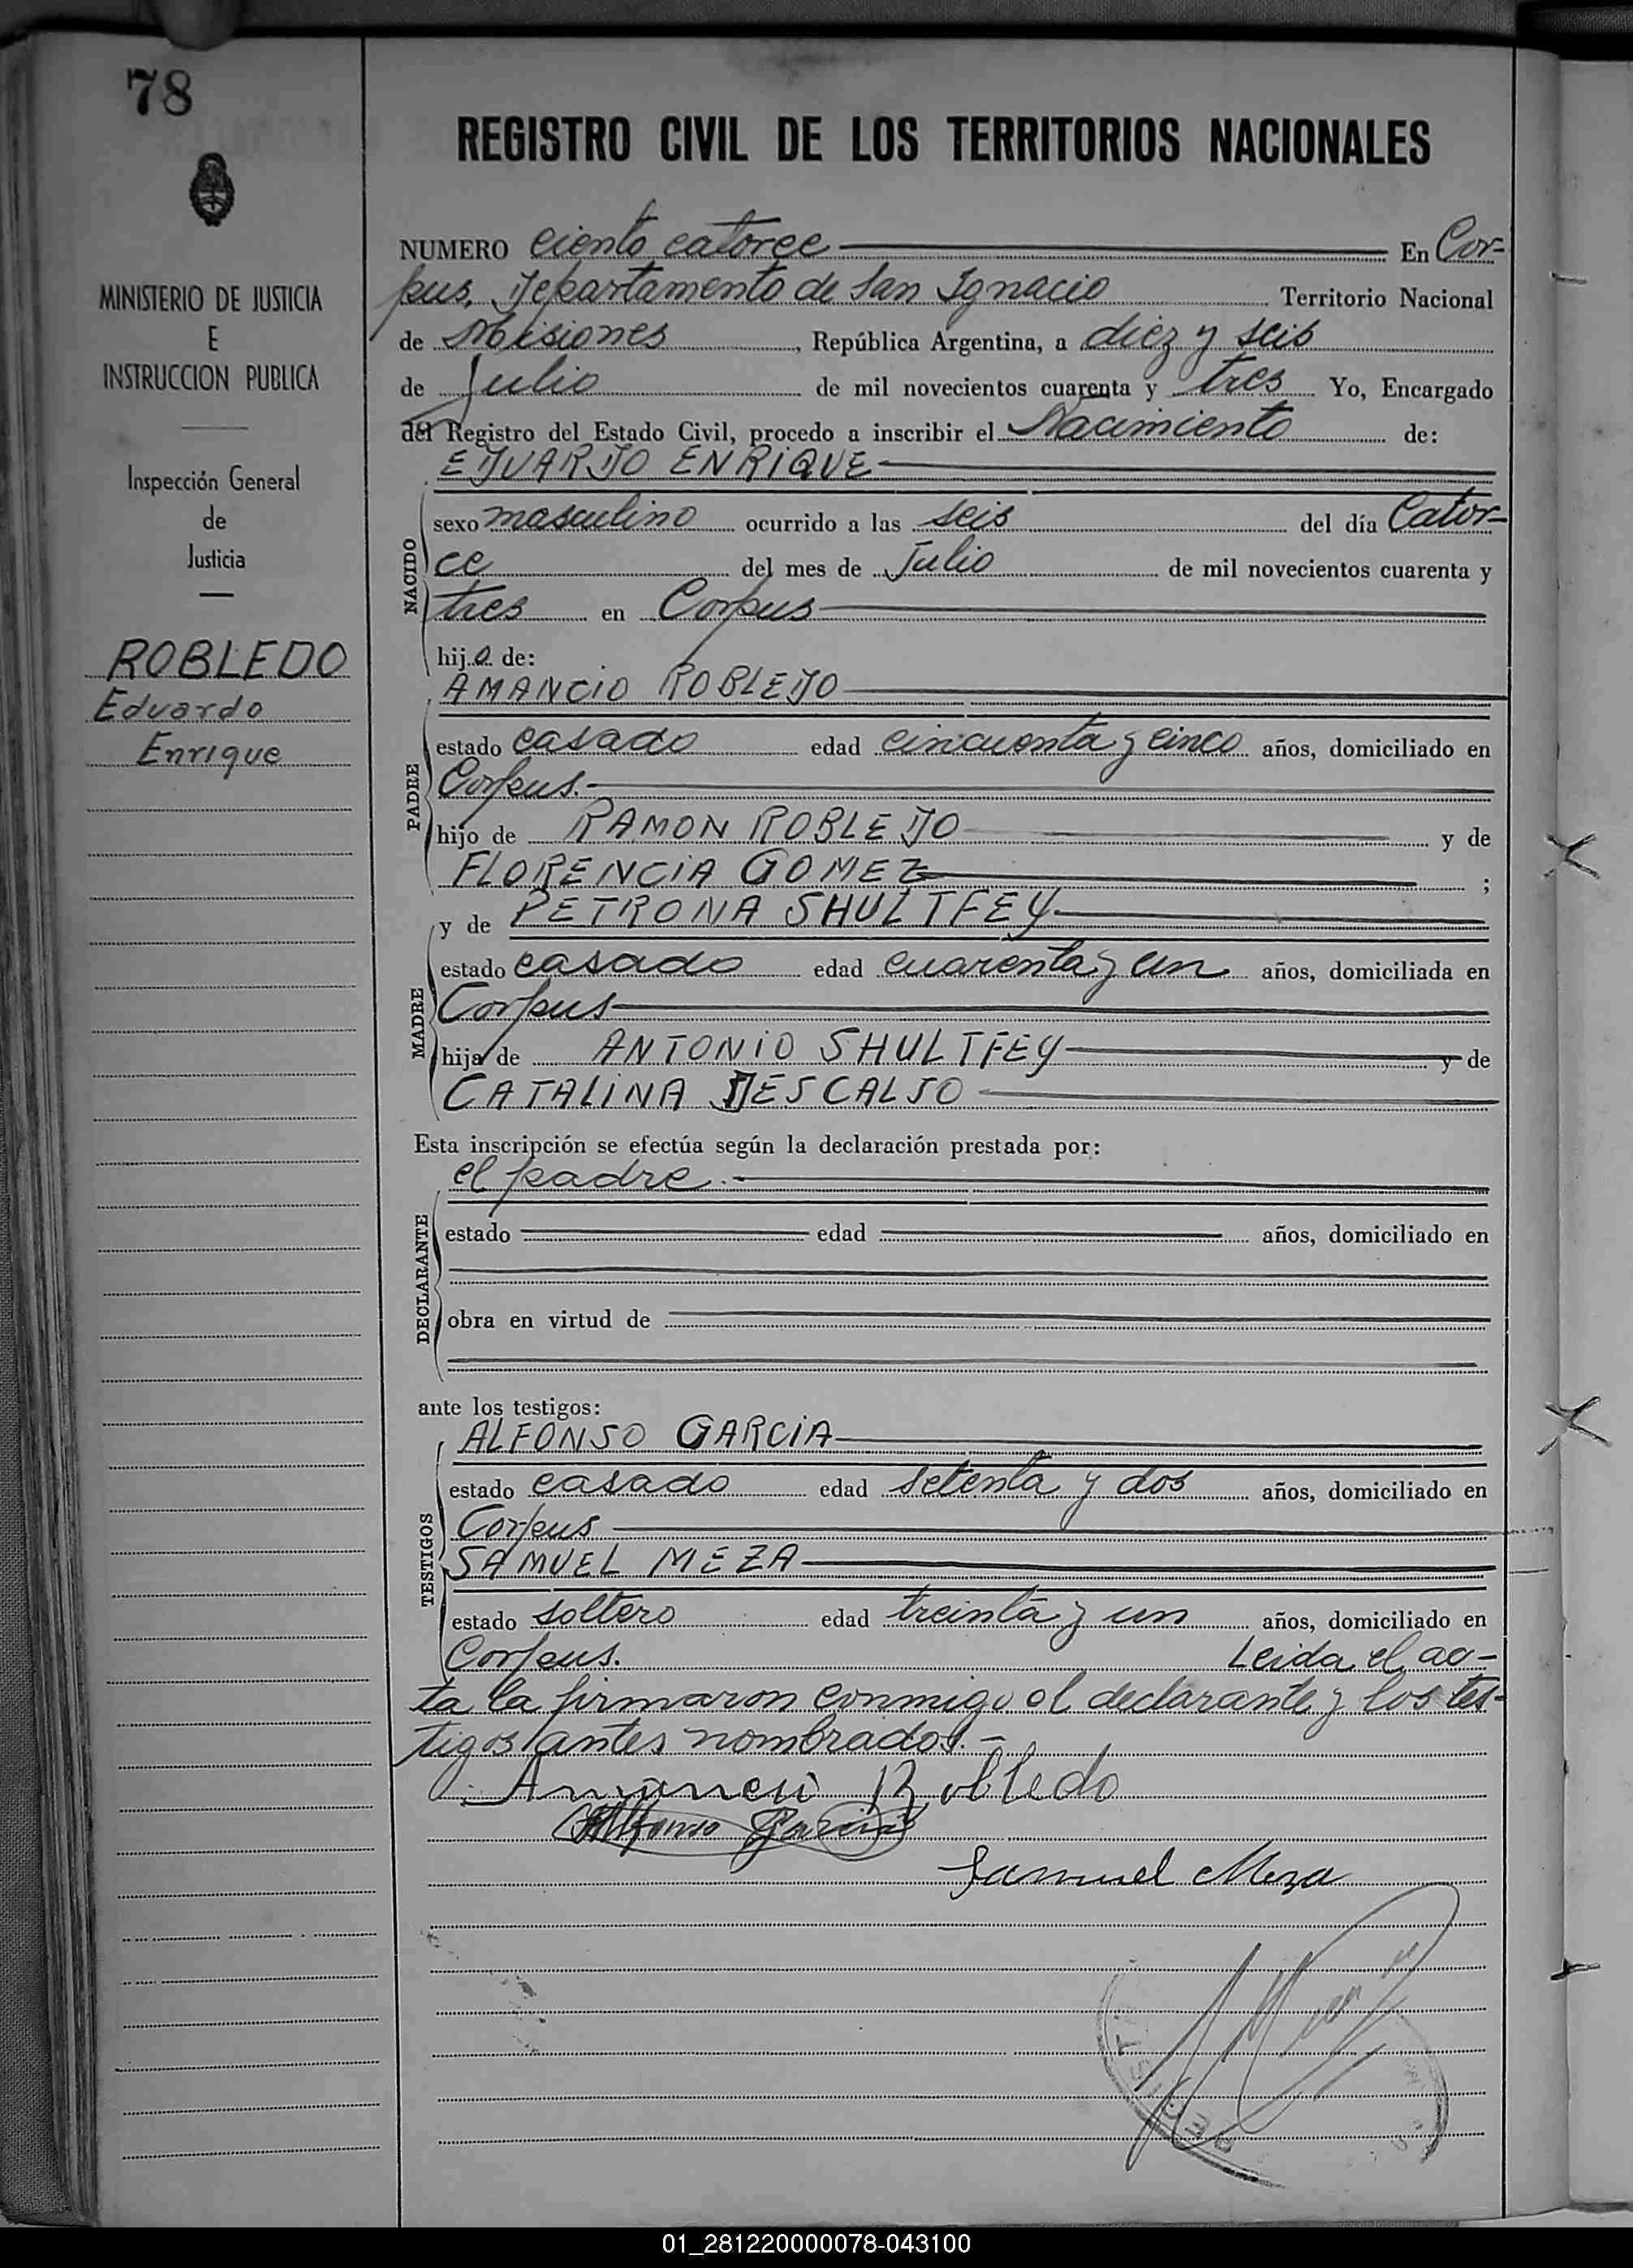 78
MINISTERIO DE JUSTICIA
E
INSTRUCCION PUBLICA
Inspección General
de
Justicia
ROBLEDO
Eduardo
Enrique
REGISTRO CIVIL DE LOS TERRITORIOS NACIONALES
NUMERO ciento catorce En Cor=
pus, Departamento de San Ignacio Territorio Nacional
de Misiones, República Argentina, a diez y seis
de Julio de mil novecientos cuarenta y tres Yo, Encargado
del Registro del Estado Civil, procedo a inscribir el Nacimiento de:
EDUARDO ENRIQUE
NACIDO
sexo masculino ocurrido a las seis del día Cator-
ce del mes de Julio de mil novecientos cuarenta y
tres en Corpus
hijo de:
AMANCIO ROBLEDO
PADRE
estado casado edad cincuenta y cinco años, domiciliado en
Corpus.-
hijo de RAMON ROBLEDO y de
FLORENCIA GOMEZ ;
y de PETRONA SHULTFEY
MADRE
estado casado edad cuarenta y un años, domiciliada en
Corpus
hija de ANTONIO SHULTFEY y de
CATALINA DESCALSO
Esta inscripción se efectúa según la declaración prestada por:
el padre.-
DECLARANTE
estado edad años, domiciliado en
obra en virtud de
ante los testigos:
ALFONSO GARCIA
TESTIGOS
estado casado edad setenta y dos años, domiciliado en
Corpus
SAMUEL MEZA
estado soltero edad treinta y un años, domiciliado en
Corpus. Leida el ac-
ta la firmaron conmigo el declarante y los tes-
tigos antes nombrados.-
Amancio Robledo
Alfonso Garcia
Samuel Meza
01_281220000078-043100